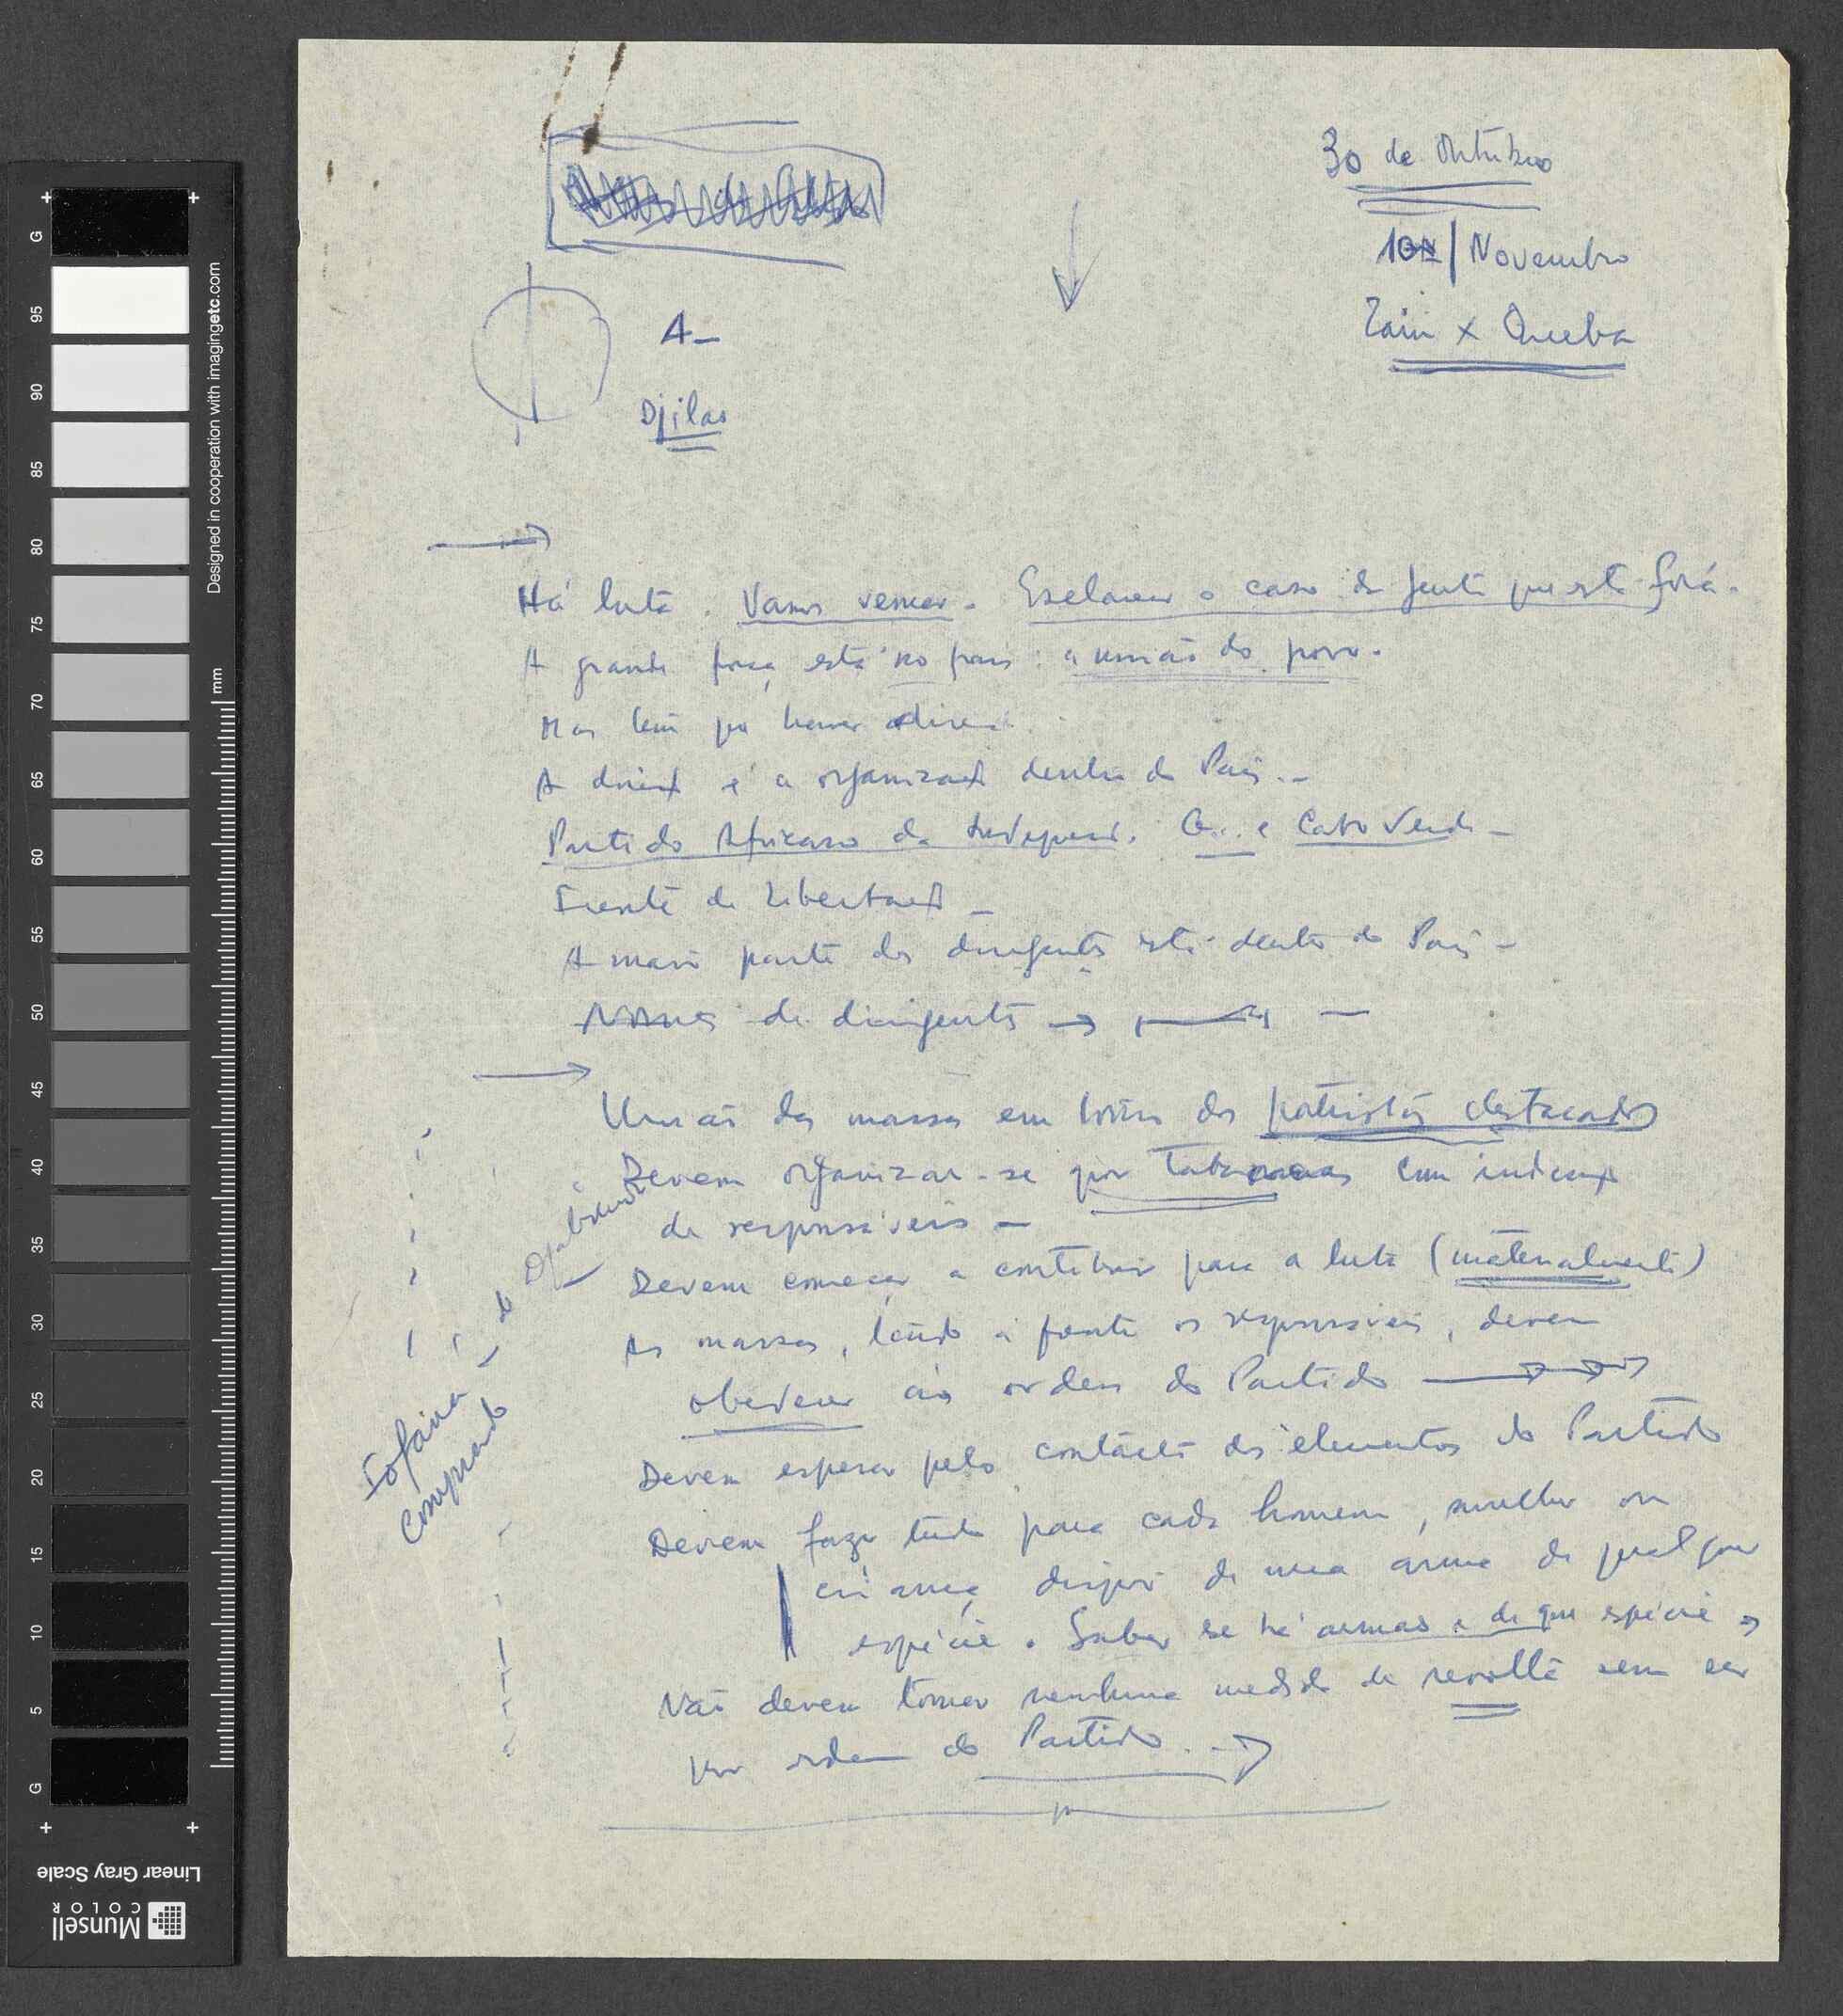 30 de Outubro
10 | Novembro
Zain x Queba
A-
Djilas
Há luta. Vamos vencer. Esclarecer o caso da gente que está fora.
A grande força está no país: a união do povo.
Mas tem que haver
A é a organizaç dentro do País.-
Partido Africano da Independ. G... e Cabo Verde -
Frente de Libertaç -
A maior parte dos dirigentes está dentro do País -
Nomes de dirigentes → —
União das massas em torno dos patriotas destacados
Devem organizar-se por Tabancas com indicaç
de responsáveis -
Devem começar a contribuir para a luta (materialmente)
As massas, tendo à frente os responsáveis, devem
obedecer às ordens do Partido
Devem esperar pelo contacto dos elementos do Partido
Devem fazer tudo para cada homem, mulher ou
criança dispor de uma arma de qualquer
espécie. Saber se há armas e de que espécie →
Não devem tomar nenhuma medida de revolta sem ser
por ordem do Partido. →
Comprando
Designed in cooperation with imagingetc.com
mm
mm
G
95
90
85
80
75
70
65
60
55
50
45
40
35
30
25
20
15
10
5
G
Linear Gray Scale
Munsell
COLOR